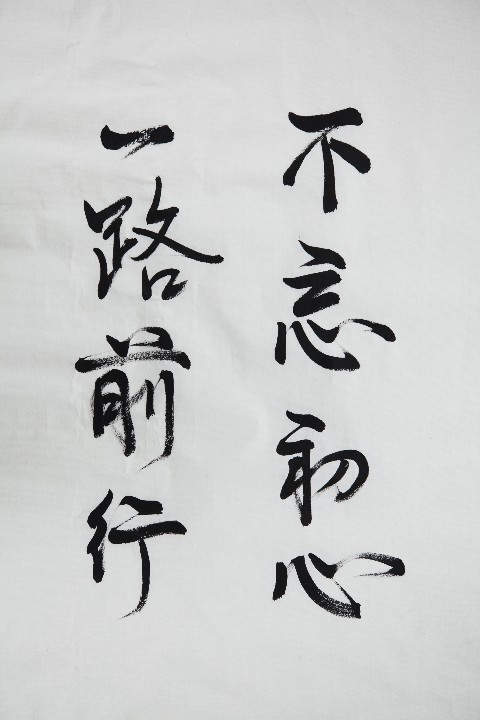 不忘初心
一路前行